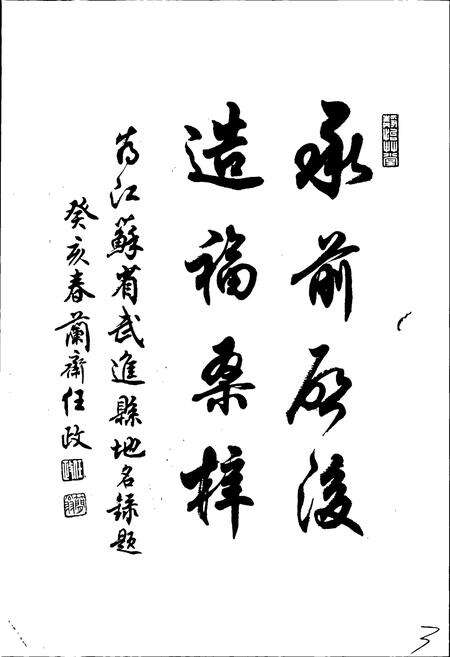 承前启後
造福桑梓
为江蘇省武進縣地名録題
癸亥春蘭齋任政
3